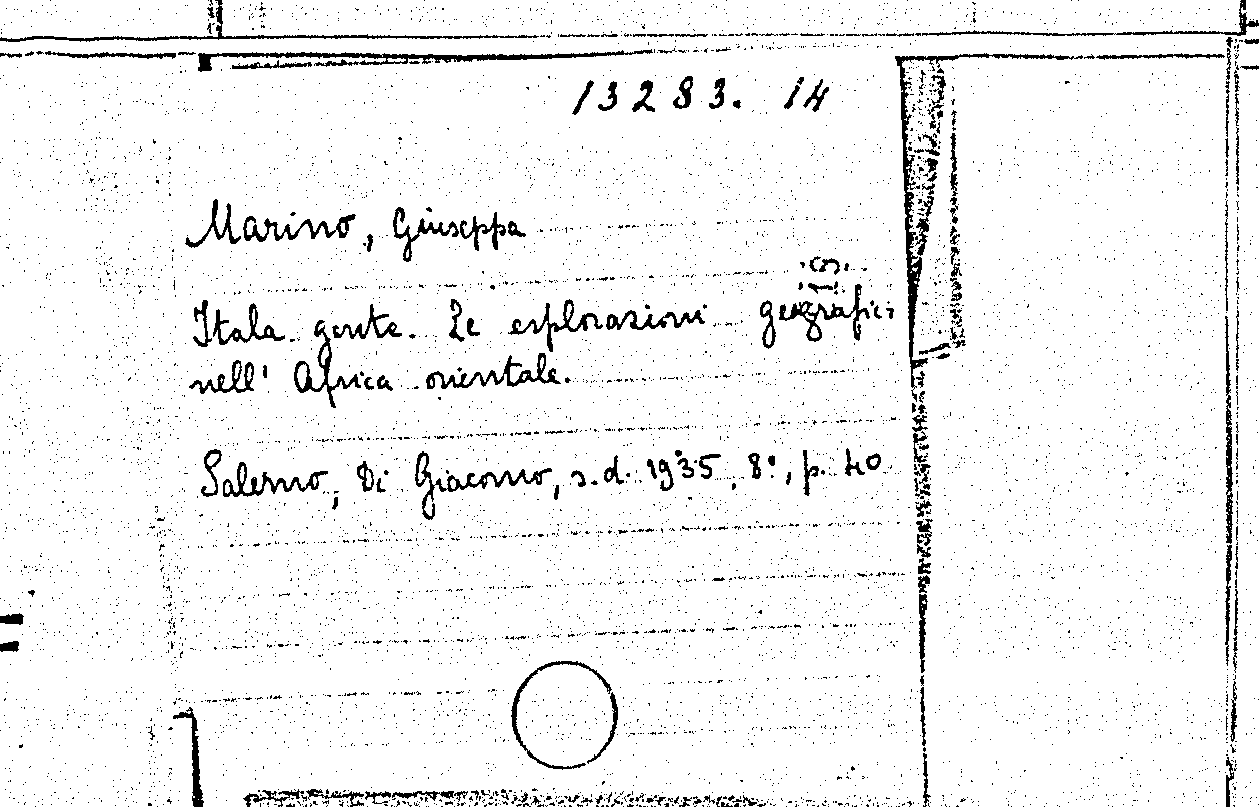 13283. 14
Marino, Giuseppa
Itala gente. Le esplorazioni
nell' Africa orientale.
Salerno, Di Giacomo, s.d. 1935, 8°, p. 40